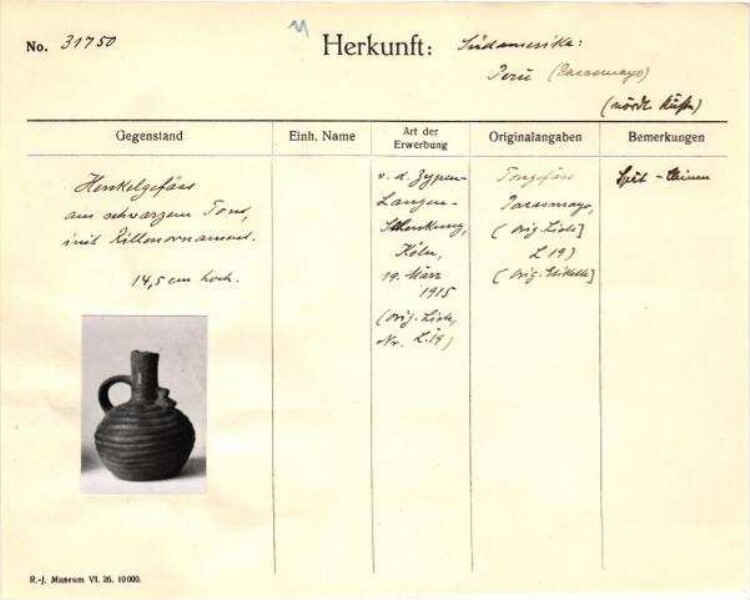 No. 31750
Herkunft: Südamerika:
Perú (Pacasmayo)
(nördl. Küste)
Gegenstand
Einh. Name
Art der
Erwerbung
Originalangaben
Bemerkungen
Henkelgefäss
aus schwarzem Ton,
mit Rillenornament.
14,5 cm hoch.
v. d. Zypen-
Langen-
Schenkung,
Köln,
19. März
1915
(Orig. Liste,
Nr. L 19)
Tongefäss
Pacasmayo,
(Orig. Liste]
L 19)
(Orig. Etikette]
Spät - Chimu
R.-J. Museum VI. 26. 10000.